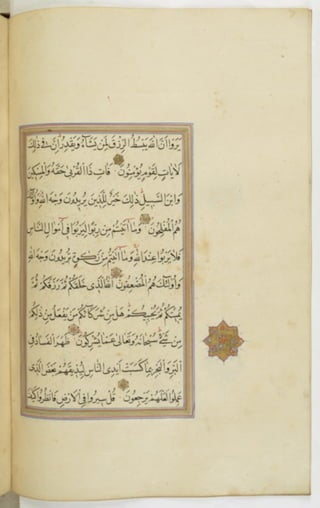 يَرَوْا أَنَّ اللهَ يَبْسُطُ الرِّزْقَ لِمَنْ يَشَاءُ وَيَقْدِرُ إِنَّ فِي ذٰلِكَ
لَآيَاتٍ لِقَوْمٍ يُؤْمِنُونَ فَآتِ ذَا الْقُرْبٰى حَقَّهُ وَالْمِسْكِينَ
وَابْنَ السَّبِيلِ ذٰلِكَ خَيْرٌ لِلَّذِينَ يُرِيدُونَ وَجْهَ اللهِ وَأُولٰئِكَ
هُمُ الْمُفْلِحُونَ وَمَا آتَيْتُمْ مِنْ رِبًوا لِيَرْبُوَا فِي أَمْوَالِ النَّاسِ
فَلَا يَرْبُوا عِنْدَ اللهِ وَمَا آتَيْتُمْ مِنْ زَكٰوةٍ تُرِيدُونَ وَجْهَ اللهِ
فَأُولٰئِكَ هُمُ الْمُضْعِفُونَ اَللهُ الَّذِي خَلَقَكُمْ ثُمَّ رَزَقَكُمْ ثُمَّ
يُمِيتُكُمْ ثُمَّ يُحْيِيكُمْ هَلْ مِنْ شُرَكَائِكُمْ مَنْ يَفْعَلُ مِنْ ذٰلِكُمْ
مِنْ شَيْءٍ سُبْحَانَهُ وَتَعَالٰى عَمَّا يُشْرِكُونَ ظَهَرَ الْفَسَادُ فِي
الْبَرِّ وَالْبَحْرِ بِمَا كَسَبَتْ أَيْدِي النَّاسِ لِيُذِيقَهُمْ بَعْضَ الَّذِي
عَمِلُوا لَعَلَّهُمْ يَرْجِعُونَ قُلْ سِيرُوا فِي الْأَرْضِ فَانْظُرُوا كَيْفَ